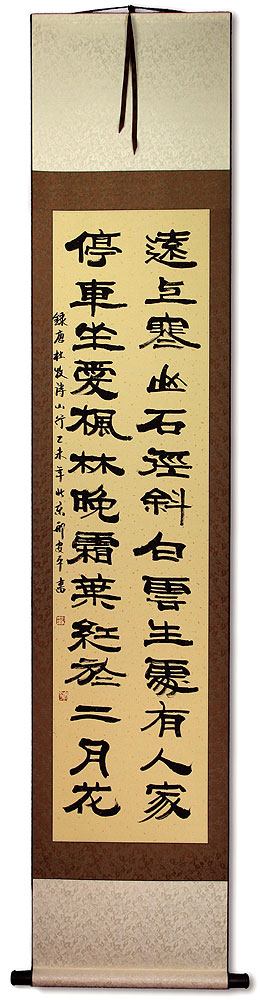 遠上寒山石徑斜白雲生處有人家
停車坐愛楓林晚霜葉紅於二月花
錄唐杜牧詩山行乙未年北京郭安平書